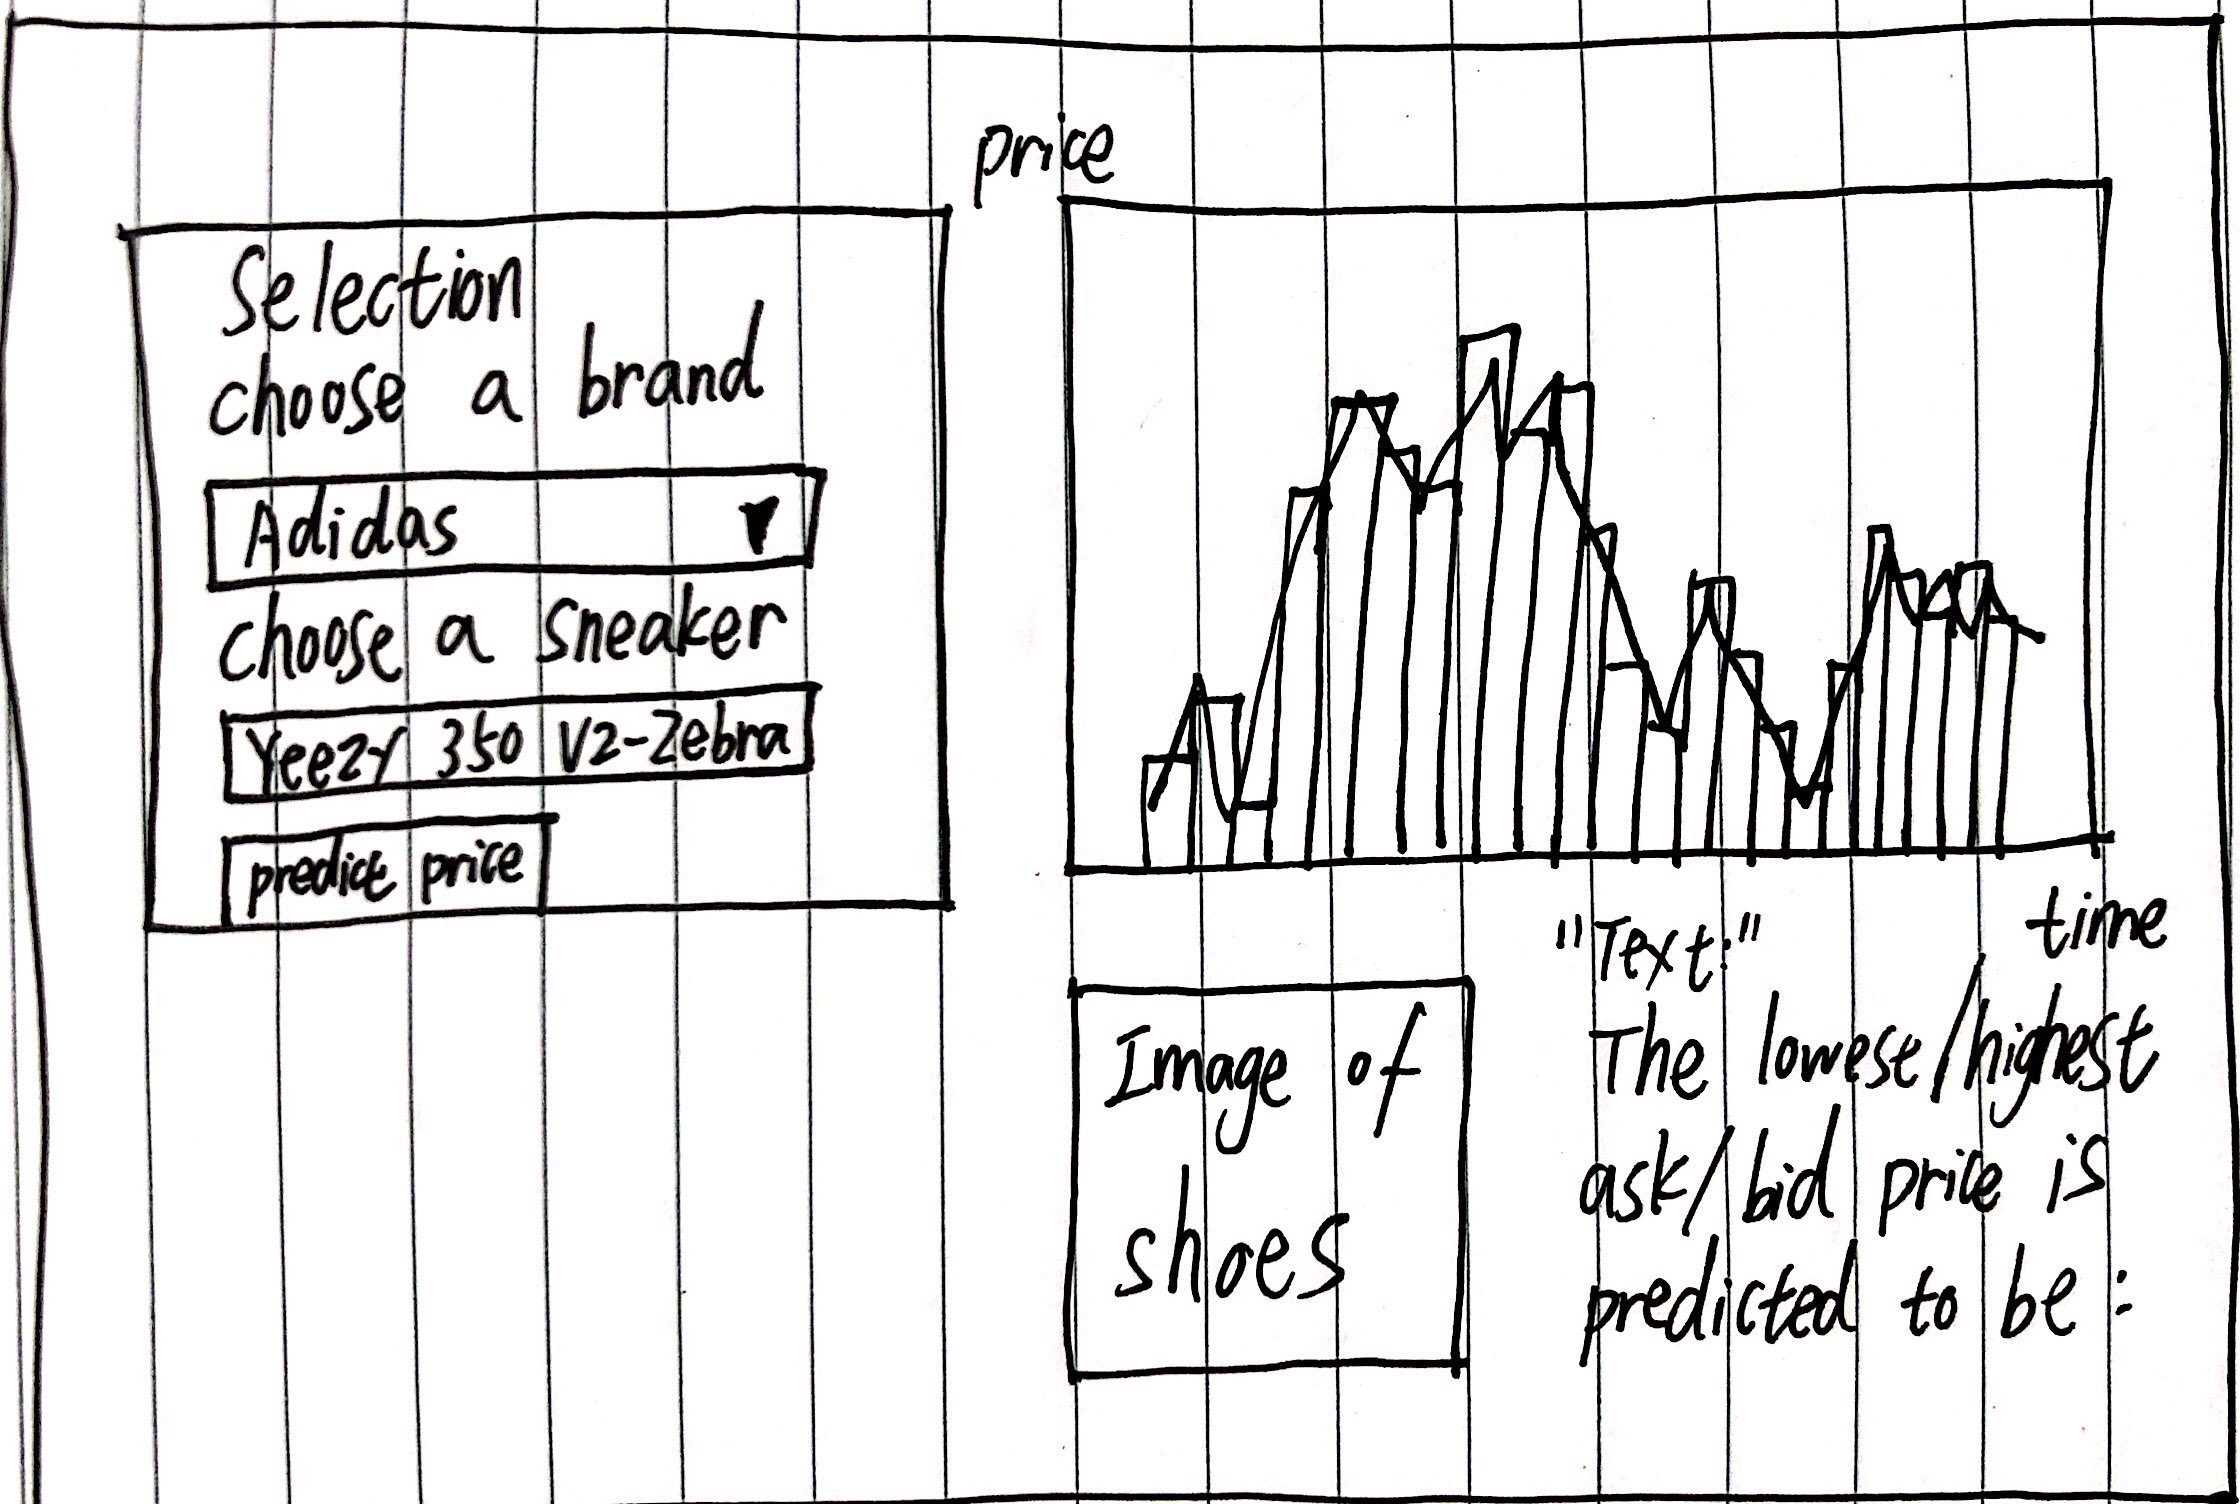 Selection
choose a brand
Adidas
choose a sneaker
Yeezy 350 V2-Zebra
predict price
price
time
"Text:"
The lowest/highest
ask/bid price is
predicted to be:
Image of
shoes